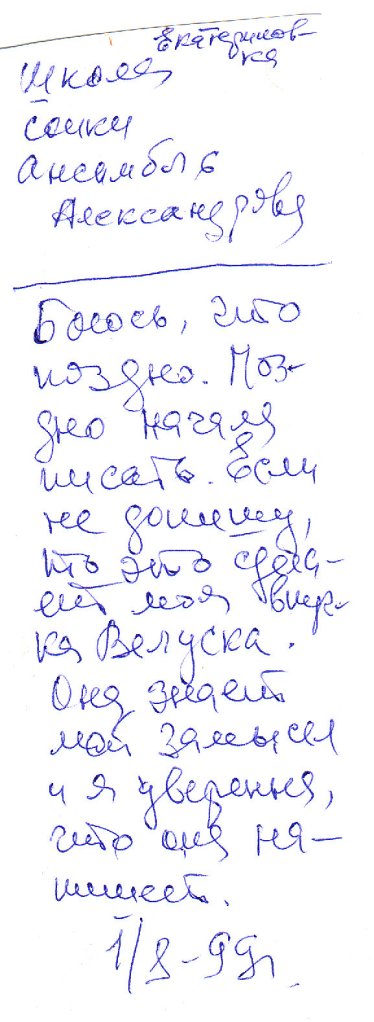 Екатеринов-
ка
Школа
сопки
Ансамбль
Александрова
Боюсь, что
поздно. Поз-
дно начала
писать. Если
не допишу,
то это сдела-
ет моя внуч-
ка Велуска.
Она знает
мой замысел
и я уверенна,
что она на-
пишет.
1/8-99г.